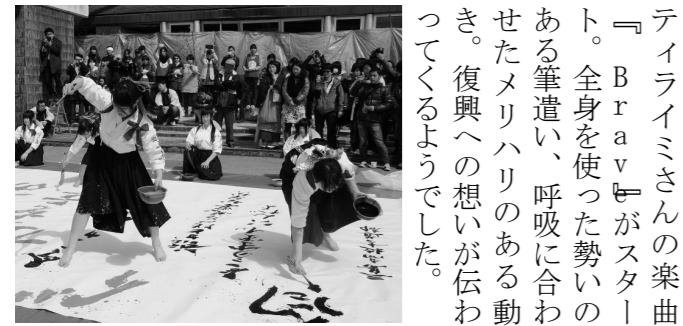 ティライミさんの楽曲
『Brave』がスター
ト。全身を使った勢いの
ある筆遣い、呼吸に合わ
せたメリハリのある動
き。復興への想いが伝わ
ってくるようでした。